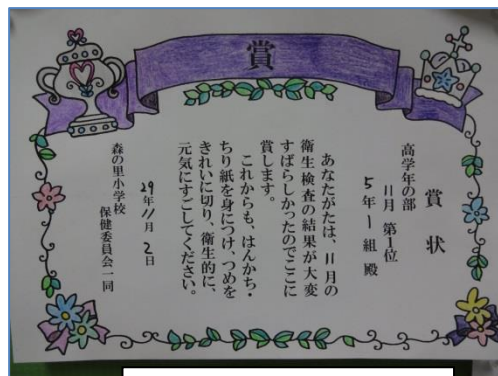 賞
賞状
高学年の部
11月 第1位
5年1組殿
あなたがたは、11月の
衛生検査の結果が大変
すばらしかったのでここに
賞します。
これからも、はんかち・
ちり紙を身につけ、つめを
きれいに切り、衛生的に、
元気にすごしてください。
29年11月2日
森の里小学校
保健委員会一同